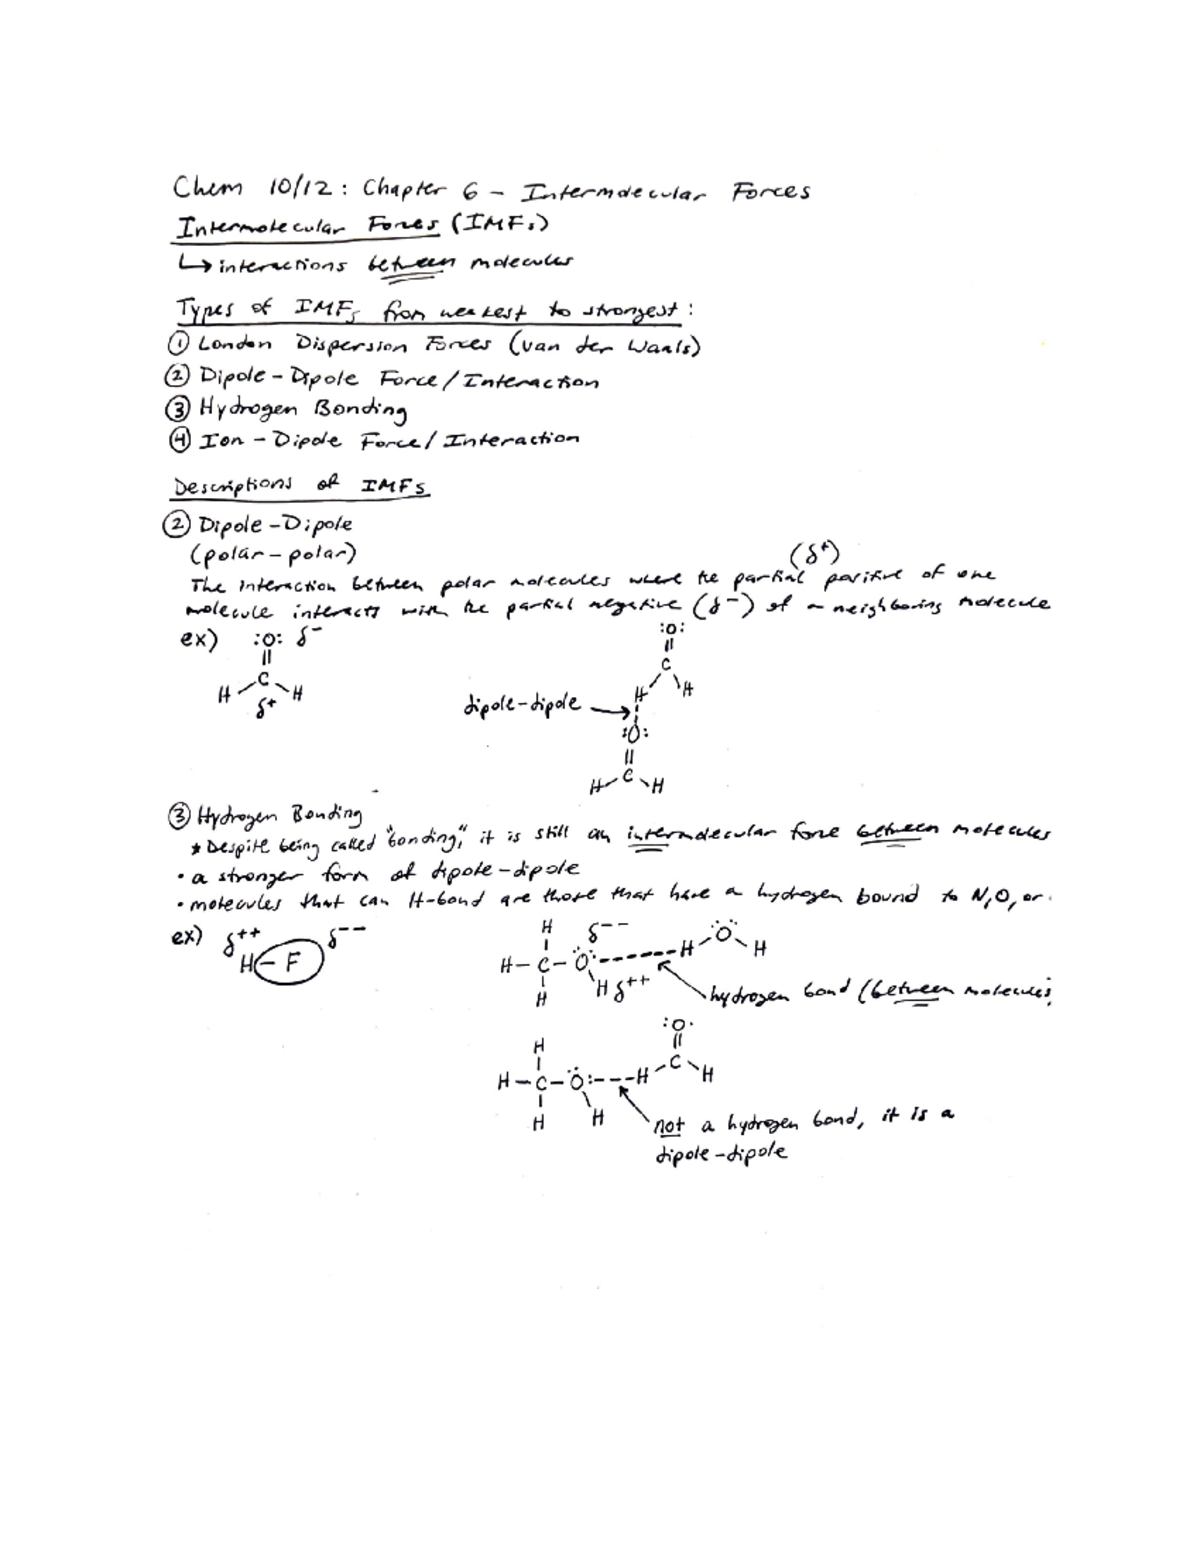 Chem 10/12: Chapter 6 – Intermolecular Forces
Intermolecular Forces (IMFs)
↳ interactions between molecules
Types of IMFs from weakest to strongest:
① London Dispersion Forces (van der Waals)
② Dipole – Dipole Force / Interaction
③ Hydrogen Bonding
④ Ion – Dipole Force / Interaction
Descriptions of IMFs
② Dipole – Dipole
(polar – polar) (δ+)
The interaction between polar molecules where the partial positive of one
molecule interacts with the partial negative (δ−) of a neighboring molecule
ex) :O: δ−
||
C
H H
δ+
:O:
||
C
H H
dipole-dipole →
:O:
||
C
H H
③ Hydrogen Bonding
* Despite being called "bonding," it is still an intermolecular force between molecules
• a stronger form of dipole-dipole
• molecules that can H-bond are those that have a hydrogen bound to N, O, or
ex) δ++ δ−−
H – F
H δ−−
H – C – O: ------ H – O – H
H H δ++
hydrogen bond (between molecules
:O·
||
H C
H – C – O: --- H H
H H
not a hydrogen bond, it is a
dipole-dipole